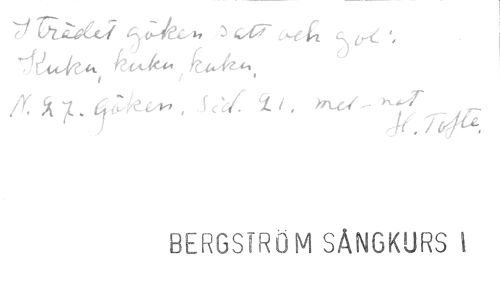 I trädet göken satt och gol:
Kuku, kuku, kuku.
N. 27. Göken. Sid. 21. mel-not
H. Tofte.
BERGSTRÖM SÅNGKURS I